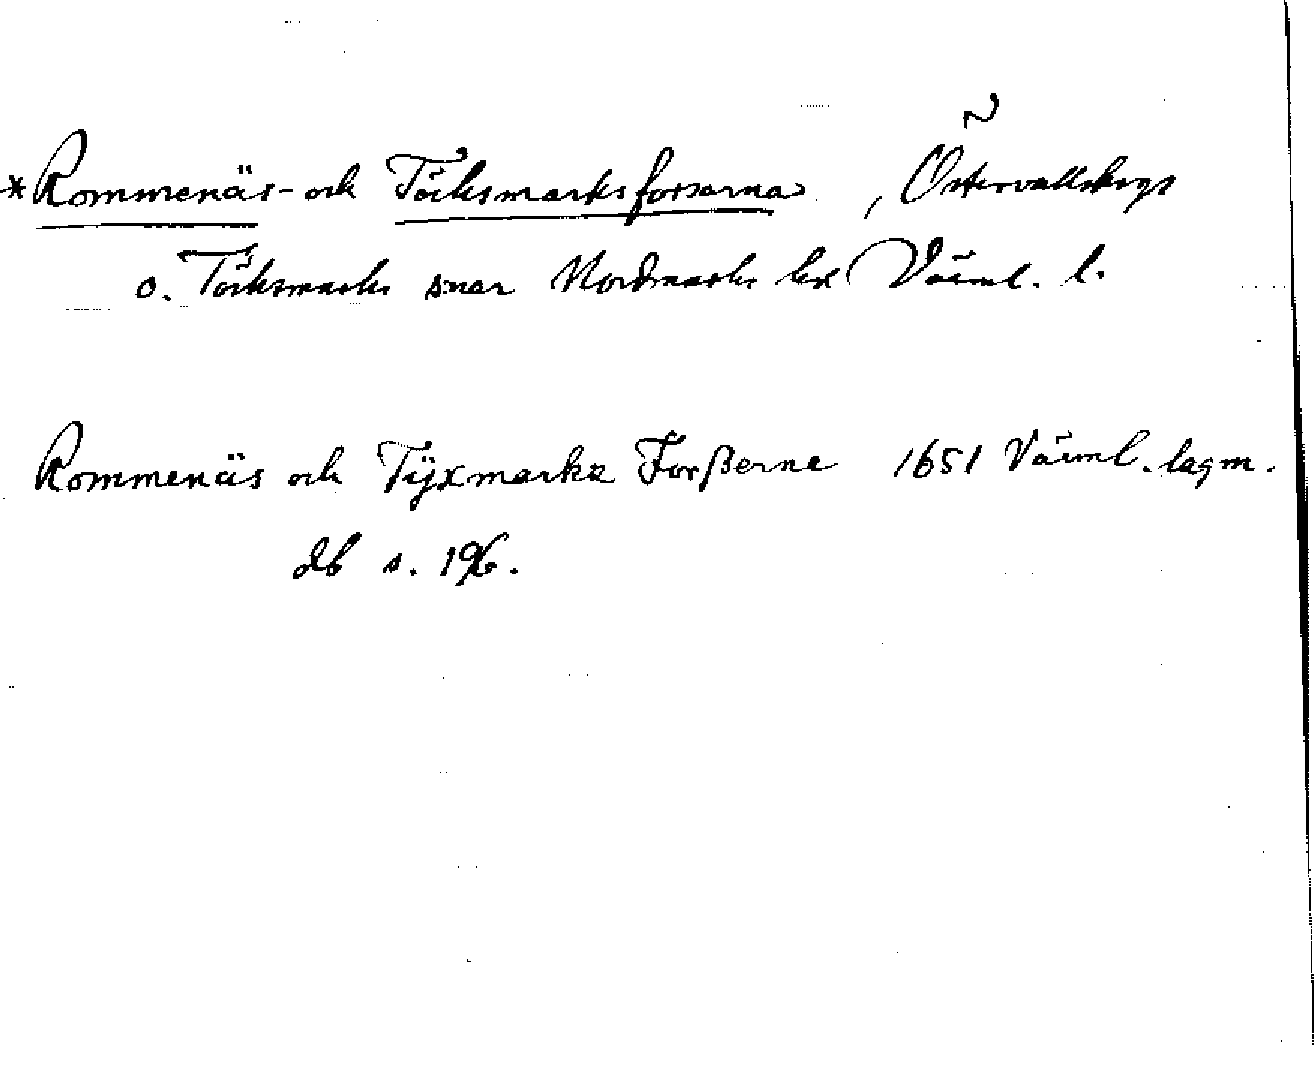 *Rommenäs- och Töcksmarksforsarna, Östervallskogs
o. Töcksmarks snar Nordmarks hd Värml. l.
Rommenäs och Tÿxmarkz Forßerne 1651 Värml. lagm.
db s. 196.